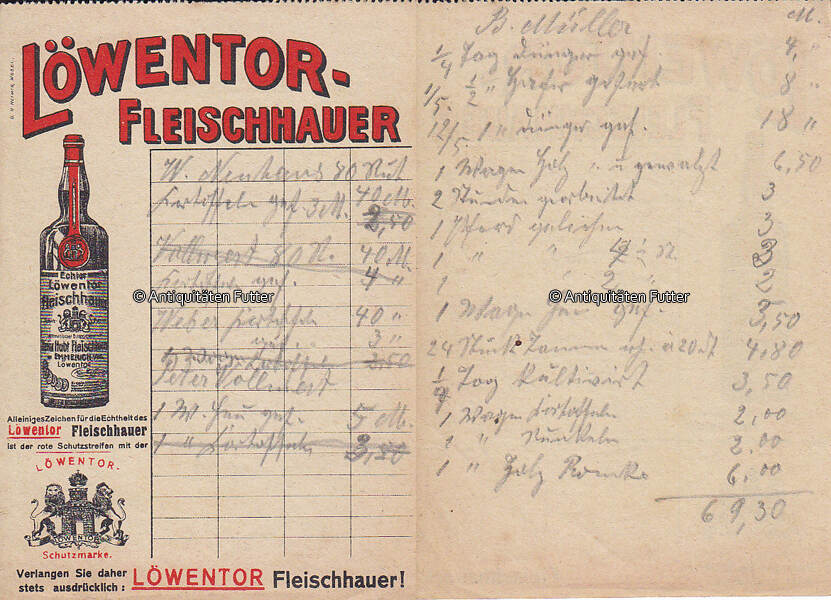 LÖWENTOR-
FLEISCHHAUER
Echter
Löwentor
Fleischhauer
EMMERICH
Löwentor
Alleiniges Zeichen für die Echtheit des
Löwentor Fleischhauer
ist der rote Schutzstreifen mit der
LÖWENTOR.
LÖWENTOR
Schutzmarke.
Verlangen Sie daher
stets ausdrücklich: LÖWENTOR Fleischhauer!
W. Neuhaus 80 Rut
Kartoffeln gef. 3 M. 40 M.
2,50
Vollmert 80 R. 40 M.
gef. 4 "
Weber Kartoffeln 40 "
gef. 3 "
3,50
Peter Vollmert
1 W. Heu gef. 5 M.
1 " Kartoffeln 3,50
© Antiquitäten Futter
B. Müller M.
1/4 Tag Dünger gef. 4, "
1/5. 1/2 " Hafer 8 "
12/5. 1 " Dünger gef. 18 "
1 Wagen Holz 6,50
2 Stunden gearbeitet 3
1 Pferd geliehen 3
1 " "
1 " 2 " 2
1 Wagen Heu gef. 3,50
24 Stück Tannen à 20 4,80
Tag kultivirt 3,50
1 Wagen Kartoffeln 2,00
1 " Runkeln 2.00
1 " Holz 6,00
69,30
© Antiquitäten Futter